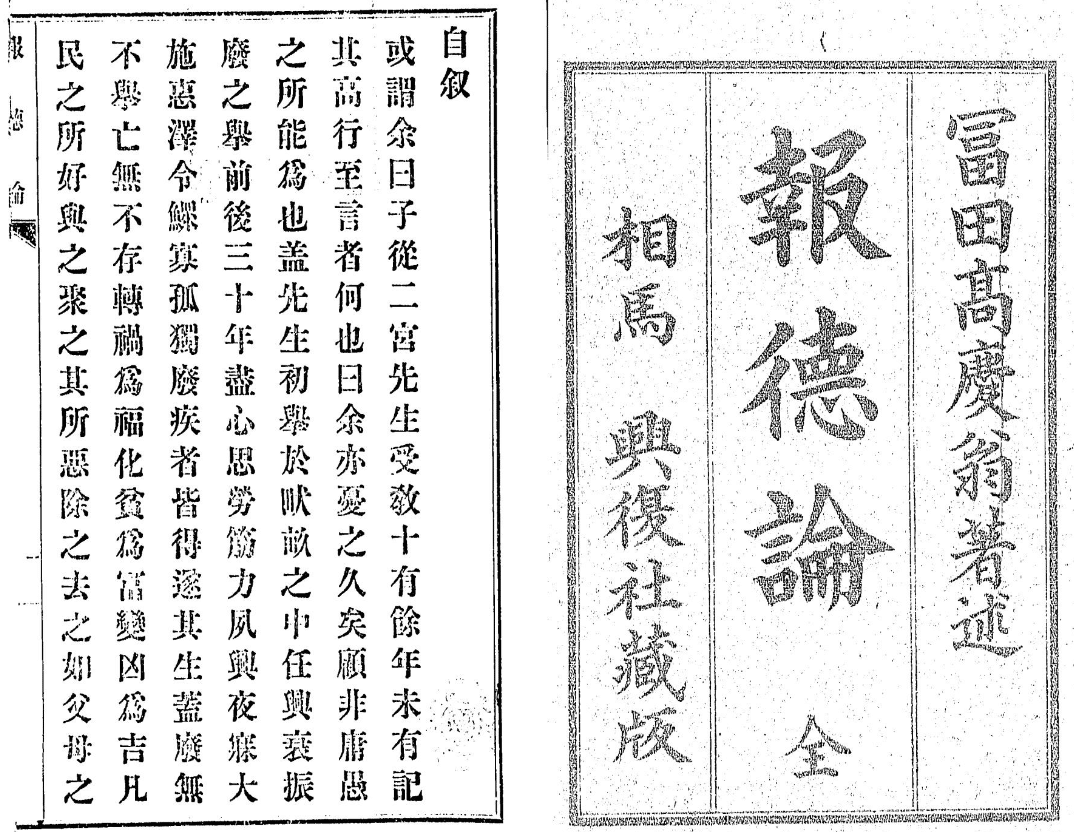 冨田髙慶翁著述
報德論 全
相馬 興復社藏版
自叙
或謂余曰子從二宮先生受敎十有餘年未有記
其高行至言者何也曰余亦憂之久矣顧非庸愚
之所能爲也盖先生初舉於畎畝之中任興衰振
廢之舉前後三十年盡心思勞筋力夙興夜寐大
施惠澤令鰥寡孤獨廢疾者皆得遂其生蓋廢無
不舉亡無不存轉禍爲福化貧爲富變凶爲吉凡
民之所好與之聚之其所惡除之去之如父母之
報德論